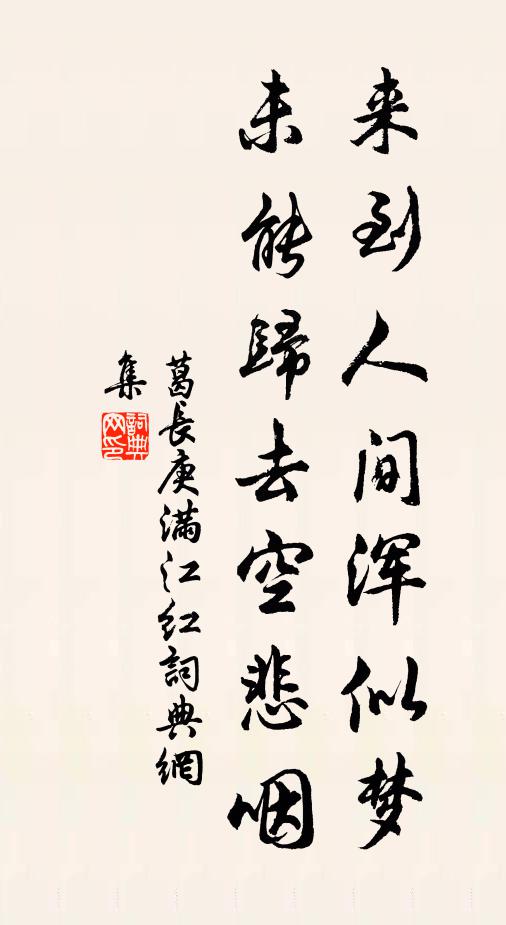 来到人间浑似梦
未能歸去空悲咽
葛長庚满江红詞典網
集
詞典
网印